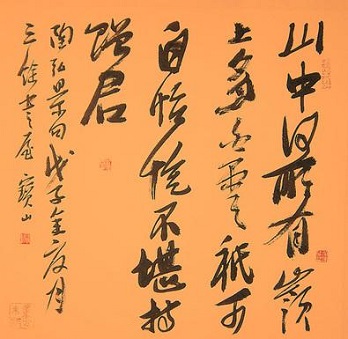 山中何所有嶺
上多白雲祇可
自怡悦不堪持
贈君
陶弘景句戊子月
三餘之屋寶山